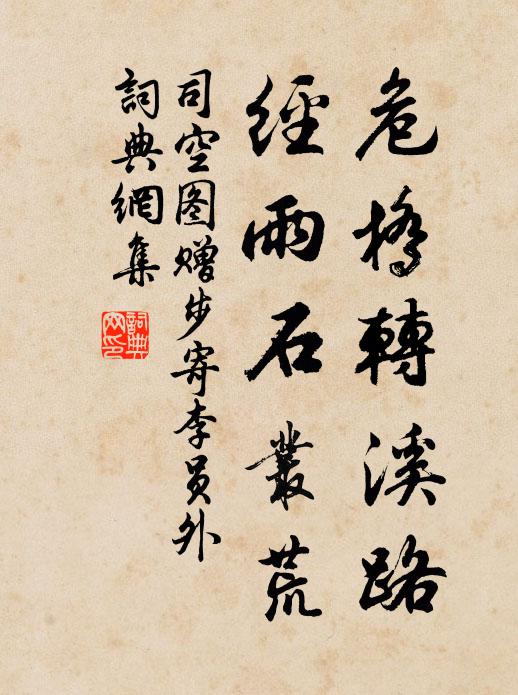 危橋轉溪路
經雨石叢荒
司空图赠步寄李员外
詞典網集
詞典